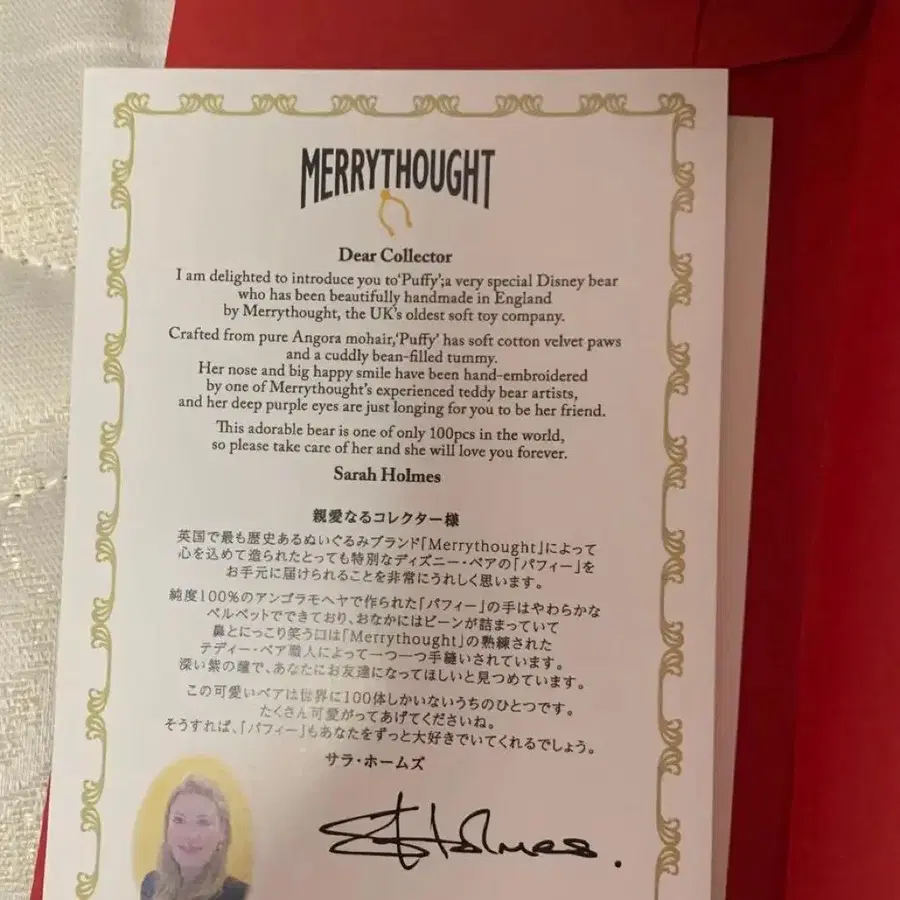 MERRYTHOUGHT
Dear Collector
I am delighted to introduce you to‘Puffy’;a very special Disney bear
who has been beautifully handmade in England
by Merrythought, the UK's oldest soft toy company.
Crafted from pure Angora mohair,‘Puffy’ has soft cotton velvet paws
and a cuddly bean-filled tummy.
Her nose and big happy smile have been hand-embroidered
by one of Merrythought's experienced teddy bear artists,
and her deep purple eyes are just longing for you to be her friend.
This adorable bear is one of only 100pcs in the world,
so please take care of her and she will love you forever.
Sarah Holmes
親愛なるコレクター様
英国で最も歴史あるぬいぐるみブランド「Merrythought」によって
心を込めて造られたとっても特別なディズニー・ベアの「パフィー」を
お手元に届けられることを非常にうれしく思います。
純度100%のアンゴラモヘヤで作られた「パフィー」の手はやわらかな
ベルベットでできており、おなかにはビーンが詰まっていて
鼻とにっこり笑う口は「Merrythought」の熟練された
テディー・ベア職人によって一つ一つ手縫いされています。
深い紫の瞳で、あなたにお友達になってほしいと見つめています。
この可愛いベアは世界に100体しかいないうちのひとつです。
たくさん可愛がってあげてくださいね。
そうすれば、「パフィー」もあなたをずっと大好きでいてくれるでしょう。
サラ・ホームズ
S Holmes.